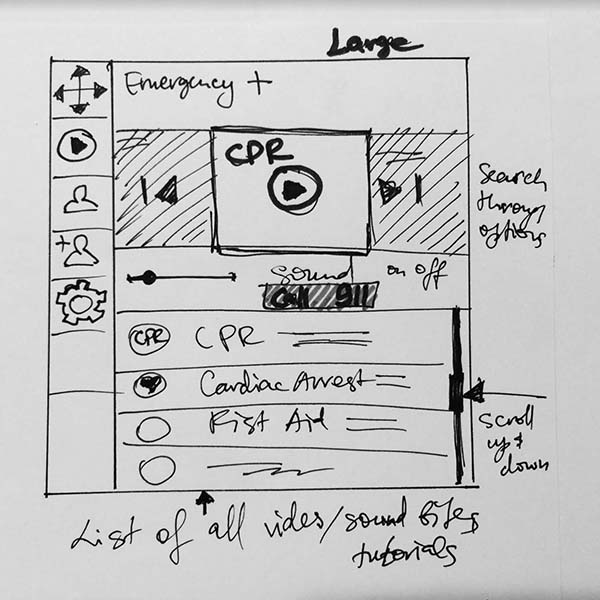 Large
Emergency +
CPR
Search
through
options
Sound
on off
Call 911
CPR CPR
Cardiac Arrest
First Aid
Scroll
up &
down
List of all video/sound bites
tutorials